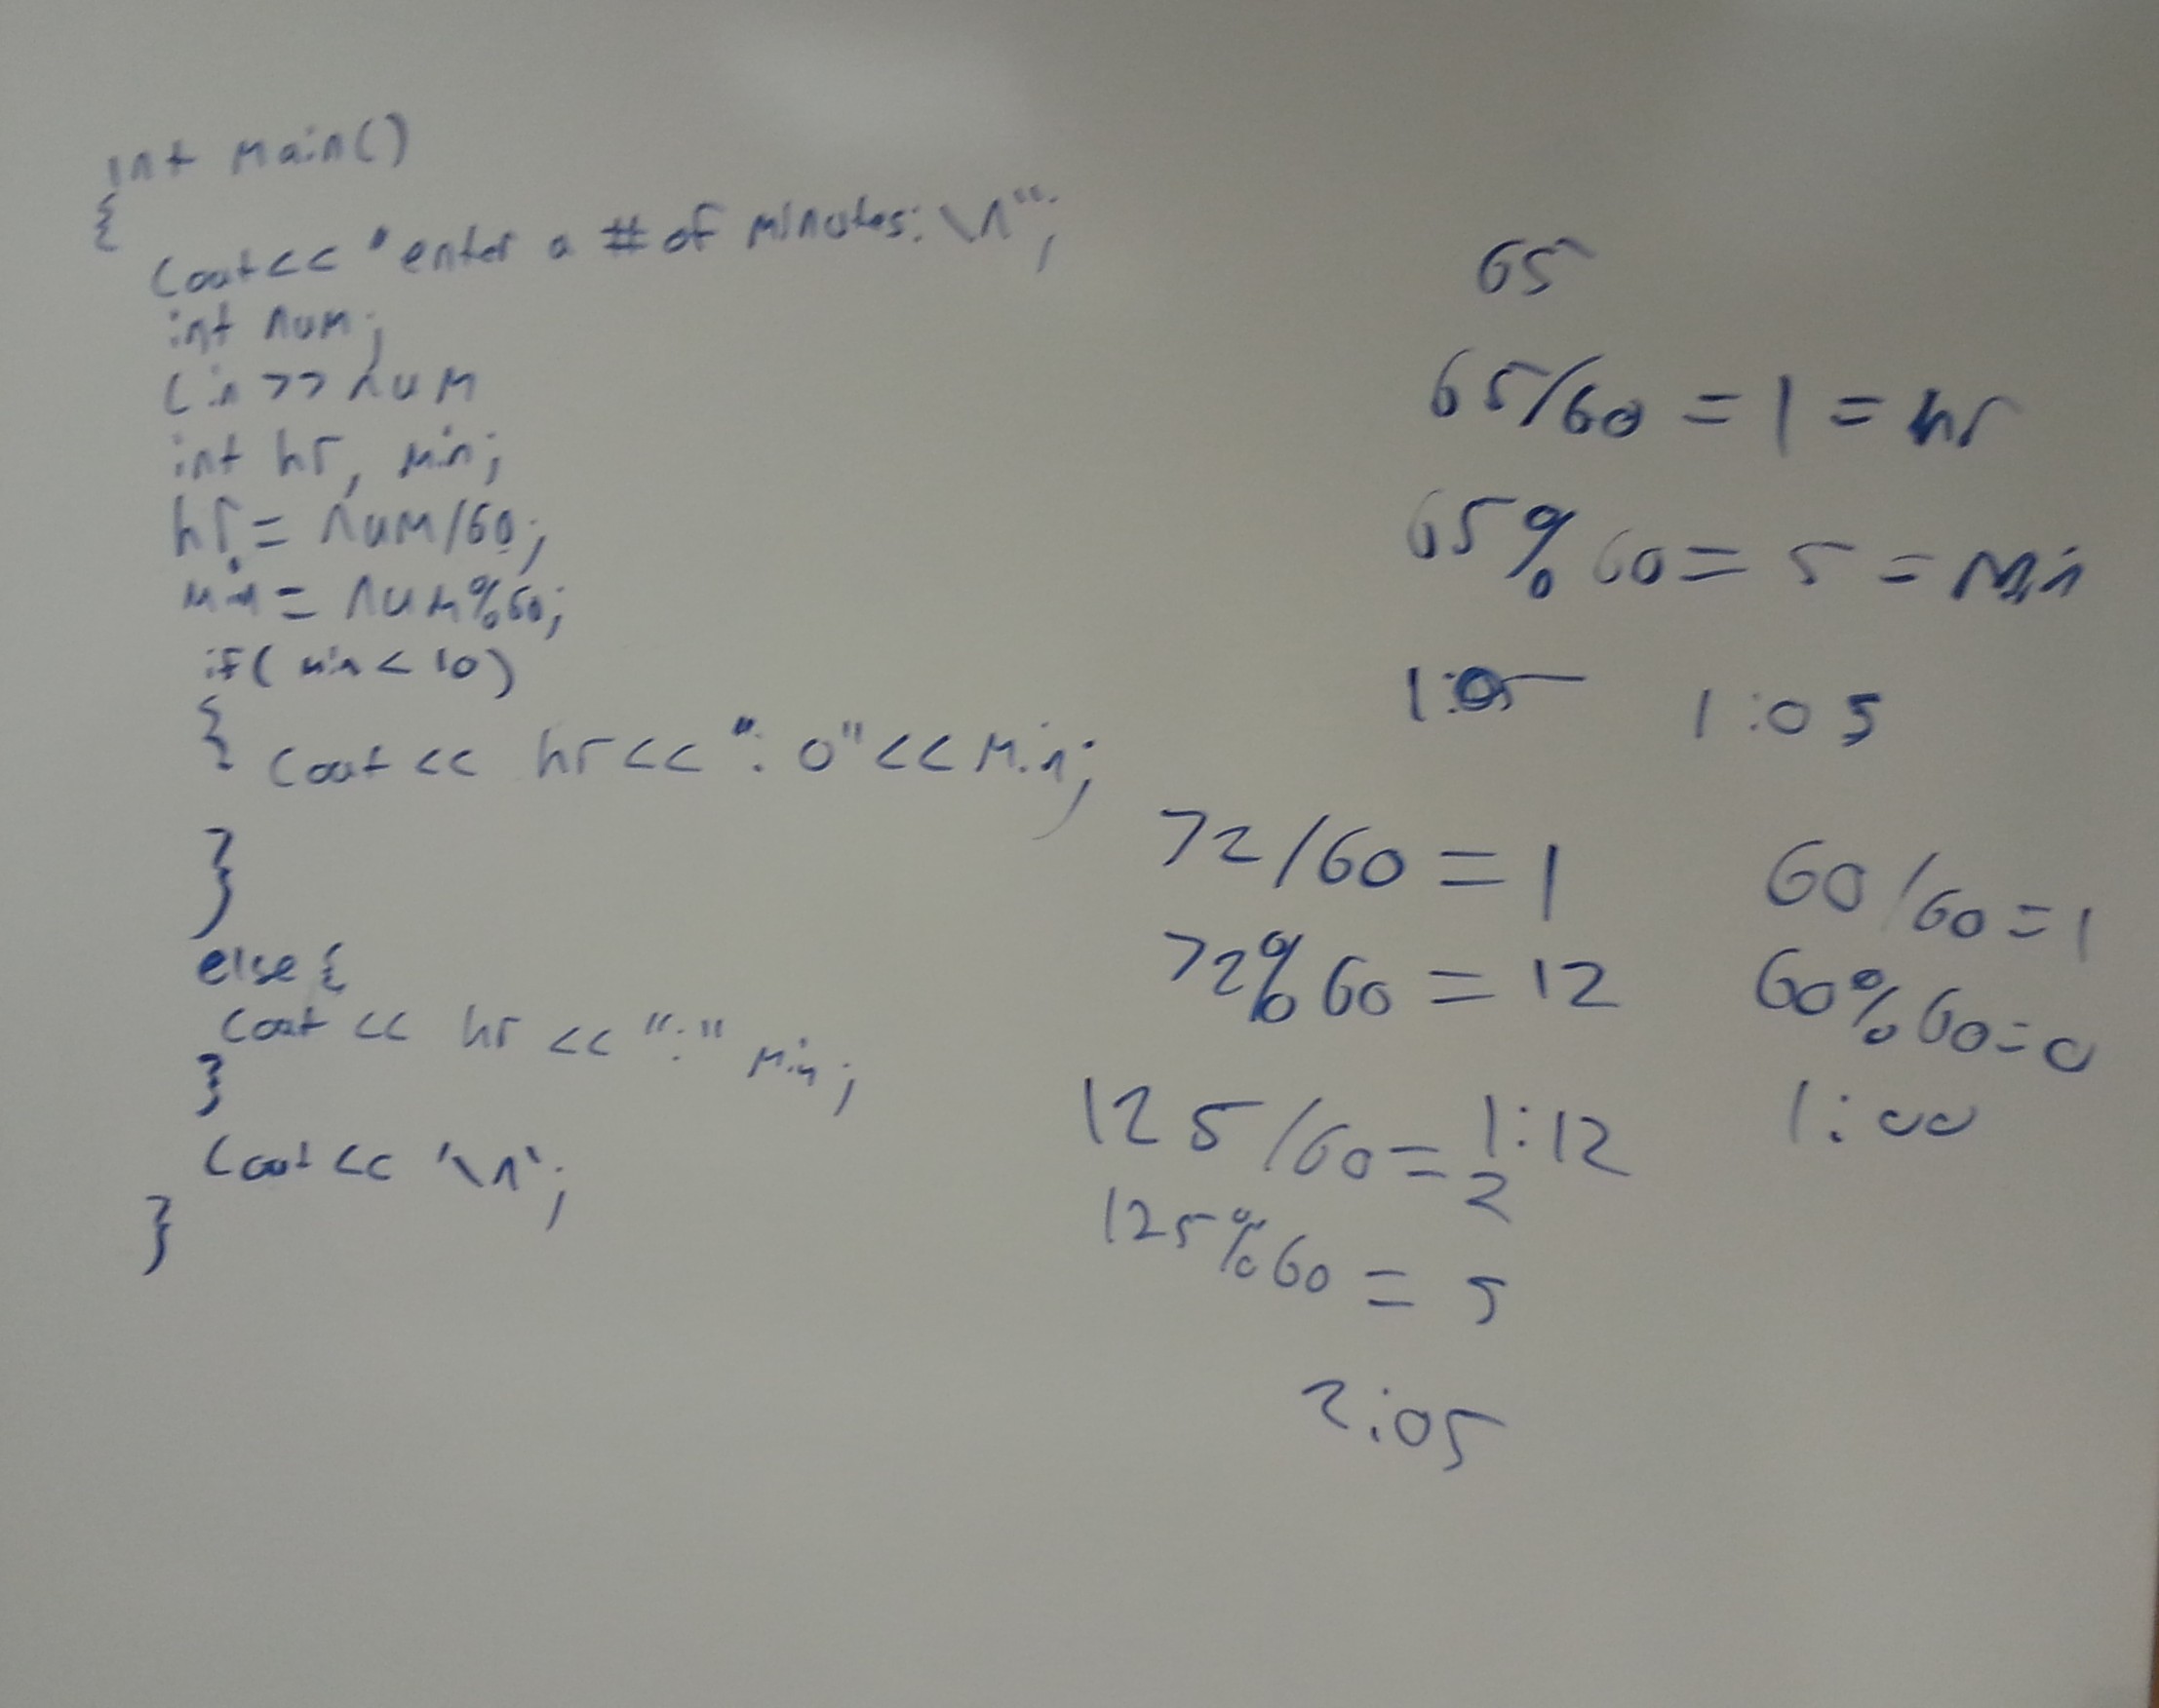 int main()
{
cout<< "enter a # of minutes: \n";
int num;
cin >> num
int hr, min;
hr = num/60;
min = num%60;
if( min < 10)
{ cout << hr<< ": 0" << min;
}
else {
cout << hr << ":" min;
}
cout << '\n';
}
65
65/60 = 1 = hr
65% 60 = 5 = min
1:05 1:05
72/60 = 1
72% 60 = 12
1:12
60/60=1
60%60=0
1:00
125/60= 2
125%60 = 5
2:05